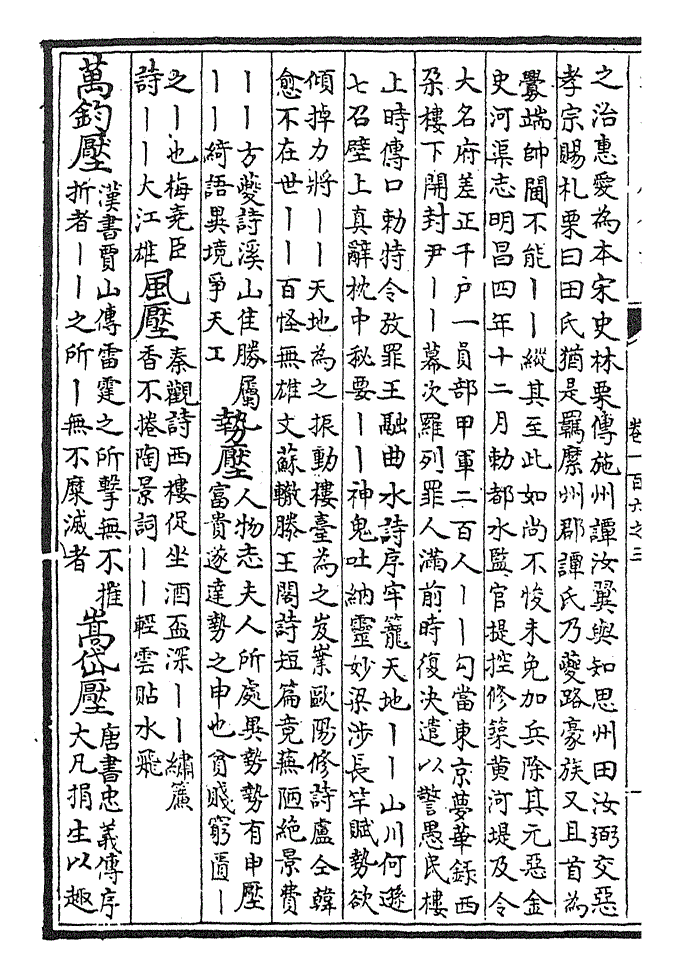 之治惠愛為本宋史林栗傳施州譚汝翼與知思州田汝弼交惡
孝宗賜札栗曰田氏猶是羈縻州郡譚氏乃夔路豪族又且首為
釁端帥閫不能丨丨縱其至此如尚不悛未免加兵除其元惡金
史河渠志明昌四年十二月勅都水監官提控修築黃河堤及令
大名府差正千户一員部甲軍二百人丨丨勾當東京夢華錄西
朶樓下開封尹丨丨幕次羅列罪人滿前時復決遣以警愚民樓
上時傳口勅特令放罪王融曲水詩序牢籠天地丨丨山川何遜
七召壁上真辭枕中秘要丨丨神鬼吐納靈妙梁涉長竿賦勢欲
傾掉力將丨丨天地為之振動樓臺為之岌嶪歐陽修詩盧仝韓
愈不在世丨丨百怪無雄文蘇轍滕王閣詩短篇竟蕪陋絶景費
丨丨方夔詩溪山佳勝屬
丨丨綺語異境爭天工
勢壓
人物志夫人所處異勢勢有申壓
富貴遂達勢之申也貧賤窮匱丨
之丨也梅堯臣
詩丨丨大江雄
風壓
秦觀詩西樓促坐酒盃深丨丨繡簾
香不捲陶景詞丨丨輕雲貼水飛
萬鈞壓
漢書賈山傳雷霆之所擊無不摧
折者丨丨之所丨無不糜滅者
嵩岱壓
唐書忠義傳序
大凡捐生以趣
卷一百六之三